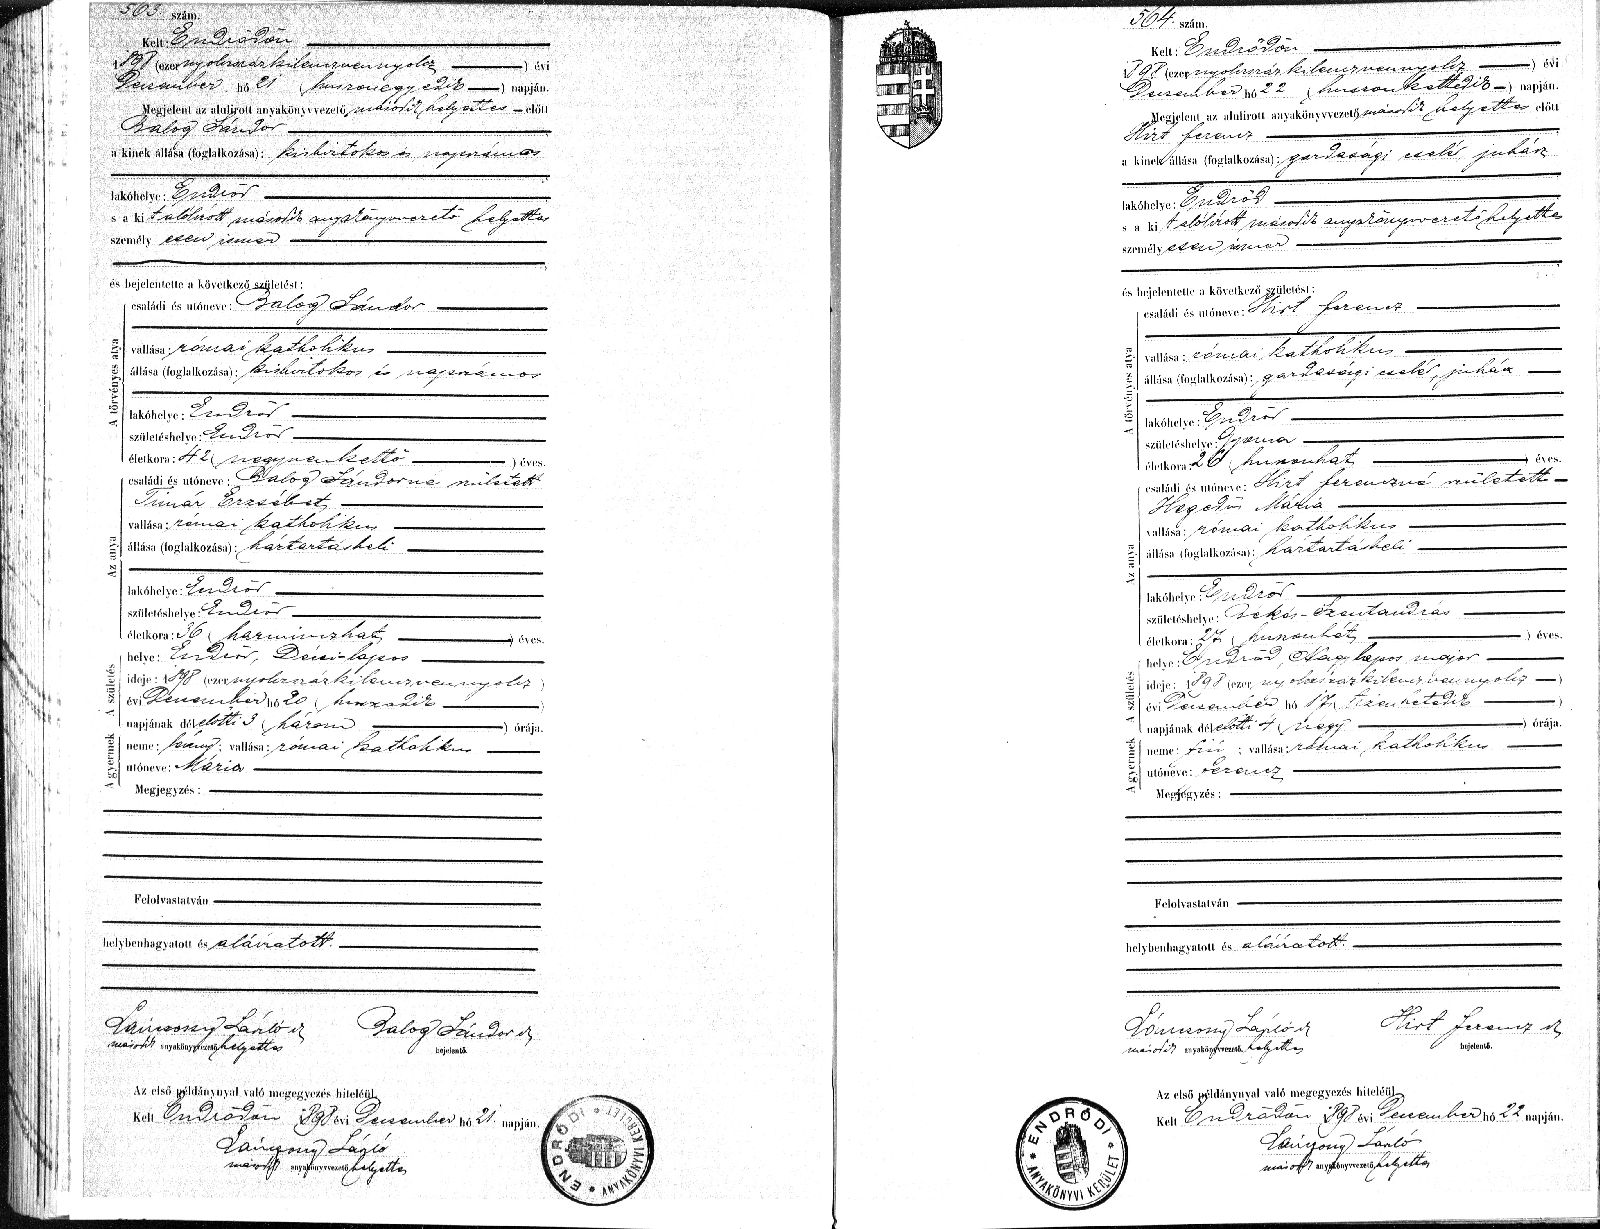 563. szám.
Kelt: Endrődön
1898 (ezernyolczszázkilenczvennyolcz) évi
December hó 21 (huszonegyedik) napján.
Megjelent az alulirott anyakönyvvezető második helyettes előtt
Balog Sándor
a kinek állása (foglalkozása): kisbirtokos és napszámos
lakóhelye: Endrőd
s a kit alólirott második anyakönyvvezető helyettes
személyesen ismer
és bejelentette a következő születést:
A törvényes atya
családi és utóneve: Balog Sándor
vallása: római katholikus
állása (foglalkozása): kisbirtokos és napszámos
lakóhelye: Endrőd
születéshelye: Endrőd
életkora: 42 (negyvenkettő) éves.
Az anya
családi és utóneve: Balog Sándorné született
Timár Erzsébet
vallása: római katholikus
állása (foglalkozása): háztartásbeli
lakóhelye: Endrőd
születéshelye: Endrőd
életkora: 36 (harminczhat) éves.
A születés
helye: Endrőd, Décsi-lapos
ideje: 1898 (ezernyolczszázkilenczvennyolcz)
évi December hó 20 (huszadik)
napjának délelőtti 3 (három) órája.
A gyermek
neme: leány; vallása: római katholikus
utóneve: Mária
Megjegyzés:
Felolvastatván
helybenhagyatott és aláiratott.
László Balog Sándor
második anyakönyvvezető helyettes bejelentő.
Az első példánynyal való megegyezés hiteléül
Kelt Endrődön 1898 évi December hó 21. napján.
László
második anyakönyvvezető helyettes
ENDRŐDI * ANYAKÖNYVI KERÜLET *
564. szám.
Kelt: Endrődön
1898 (ezernyolczszázkilenczvennyolcz) évi
December hó 22 (huszonkettedik) napján.
Megjelent az alulirott anyakönyvvezető második helyettes előtt
Hirt Ferencz
a kinek állása (foglalkozása): gazdasági cseléd juhász
lakóhelye: Endrőd
s a kit alólirott második anyakönyvvezető helyettes
személyesen ismer
és bejelentette a következő születést:
A törvényes atya
családi és utóneve: Hirt Ferencz
vallása: római katholikus
állása (foglalkozása): gazdasági cseléd, juhász
lakóhelye: Endrőd
születéshelye: Gyoma
életkora: 26 (huszonhat) éves.
Az anya
családi és utóneve: Hirt Ferenczné született
Hegedüs Mária
vallása: római katholikus
állása (foglalkozása): háztartásbeli
lakóhelye: Endrőd
születéshelye: Békés-Szentandrás
életkora: 27 (huszonhét) éves.
A születés
helye: Endrőd, Nagylapos major
ideje: 1898 (ezernyolczszázkilenczvennyolcz)
évi December hó 17 (tizenhetedik)
napjának délelőtti 4 (négy) órája.
A gyermek
neme: fiú; vallása: római katholikus
utóneve: Ferencz
Megjegyzés:
Felolvastatván
helybenhagyatott és aláiratott.
László Hirt Ferencz
második anyakönyvvezető helyettes bejelentő.
Az első példánynyal való megegyezés hiteléül
Kelt Endrődön 1898 évi December hó 22 napján.
László
második anyakönyvvezető helyettes
ENDRŐDI * ANYAKÖNYVI KERÜLET *